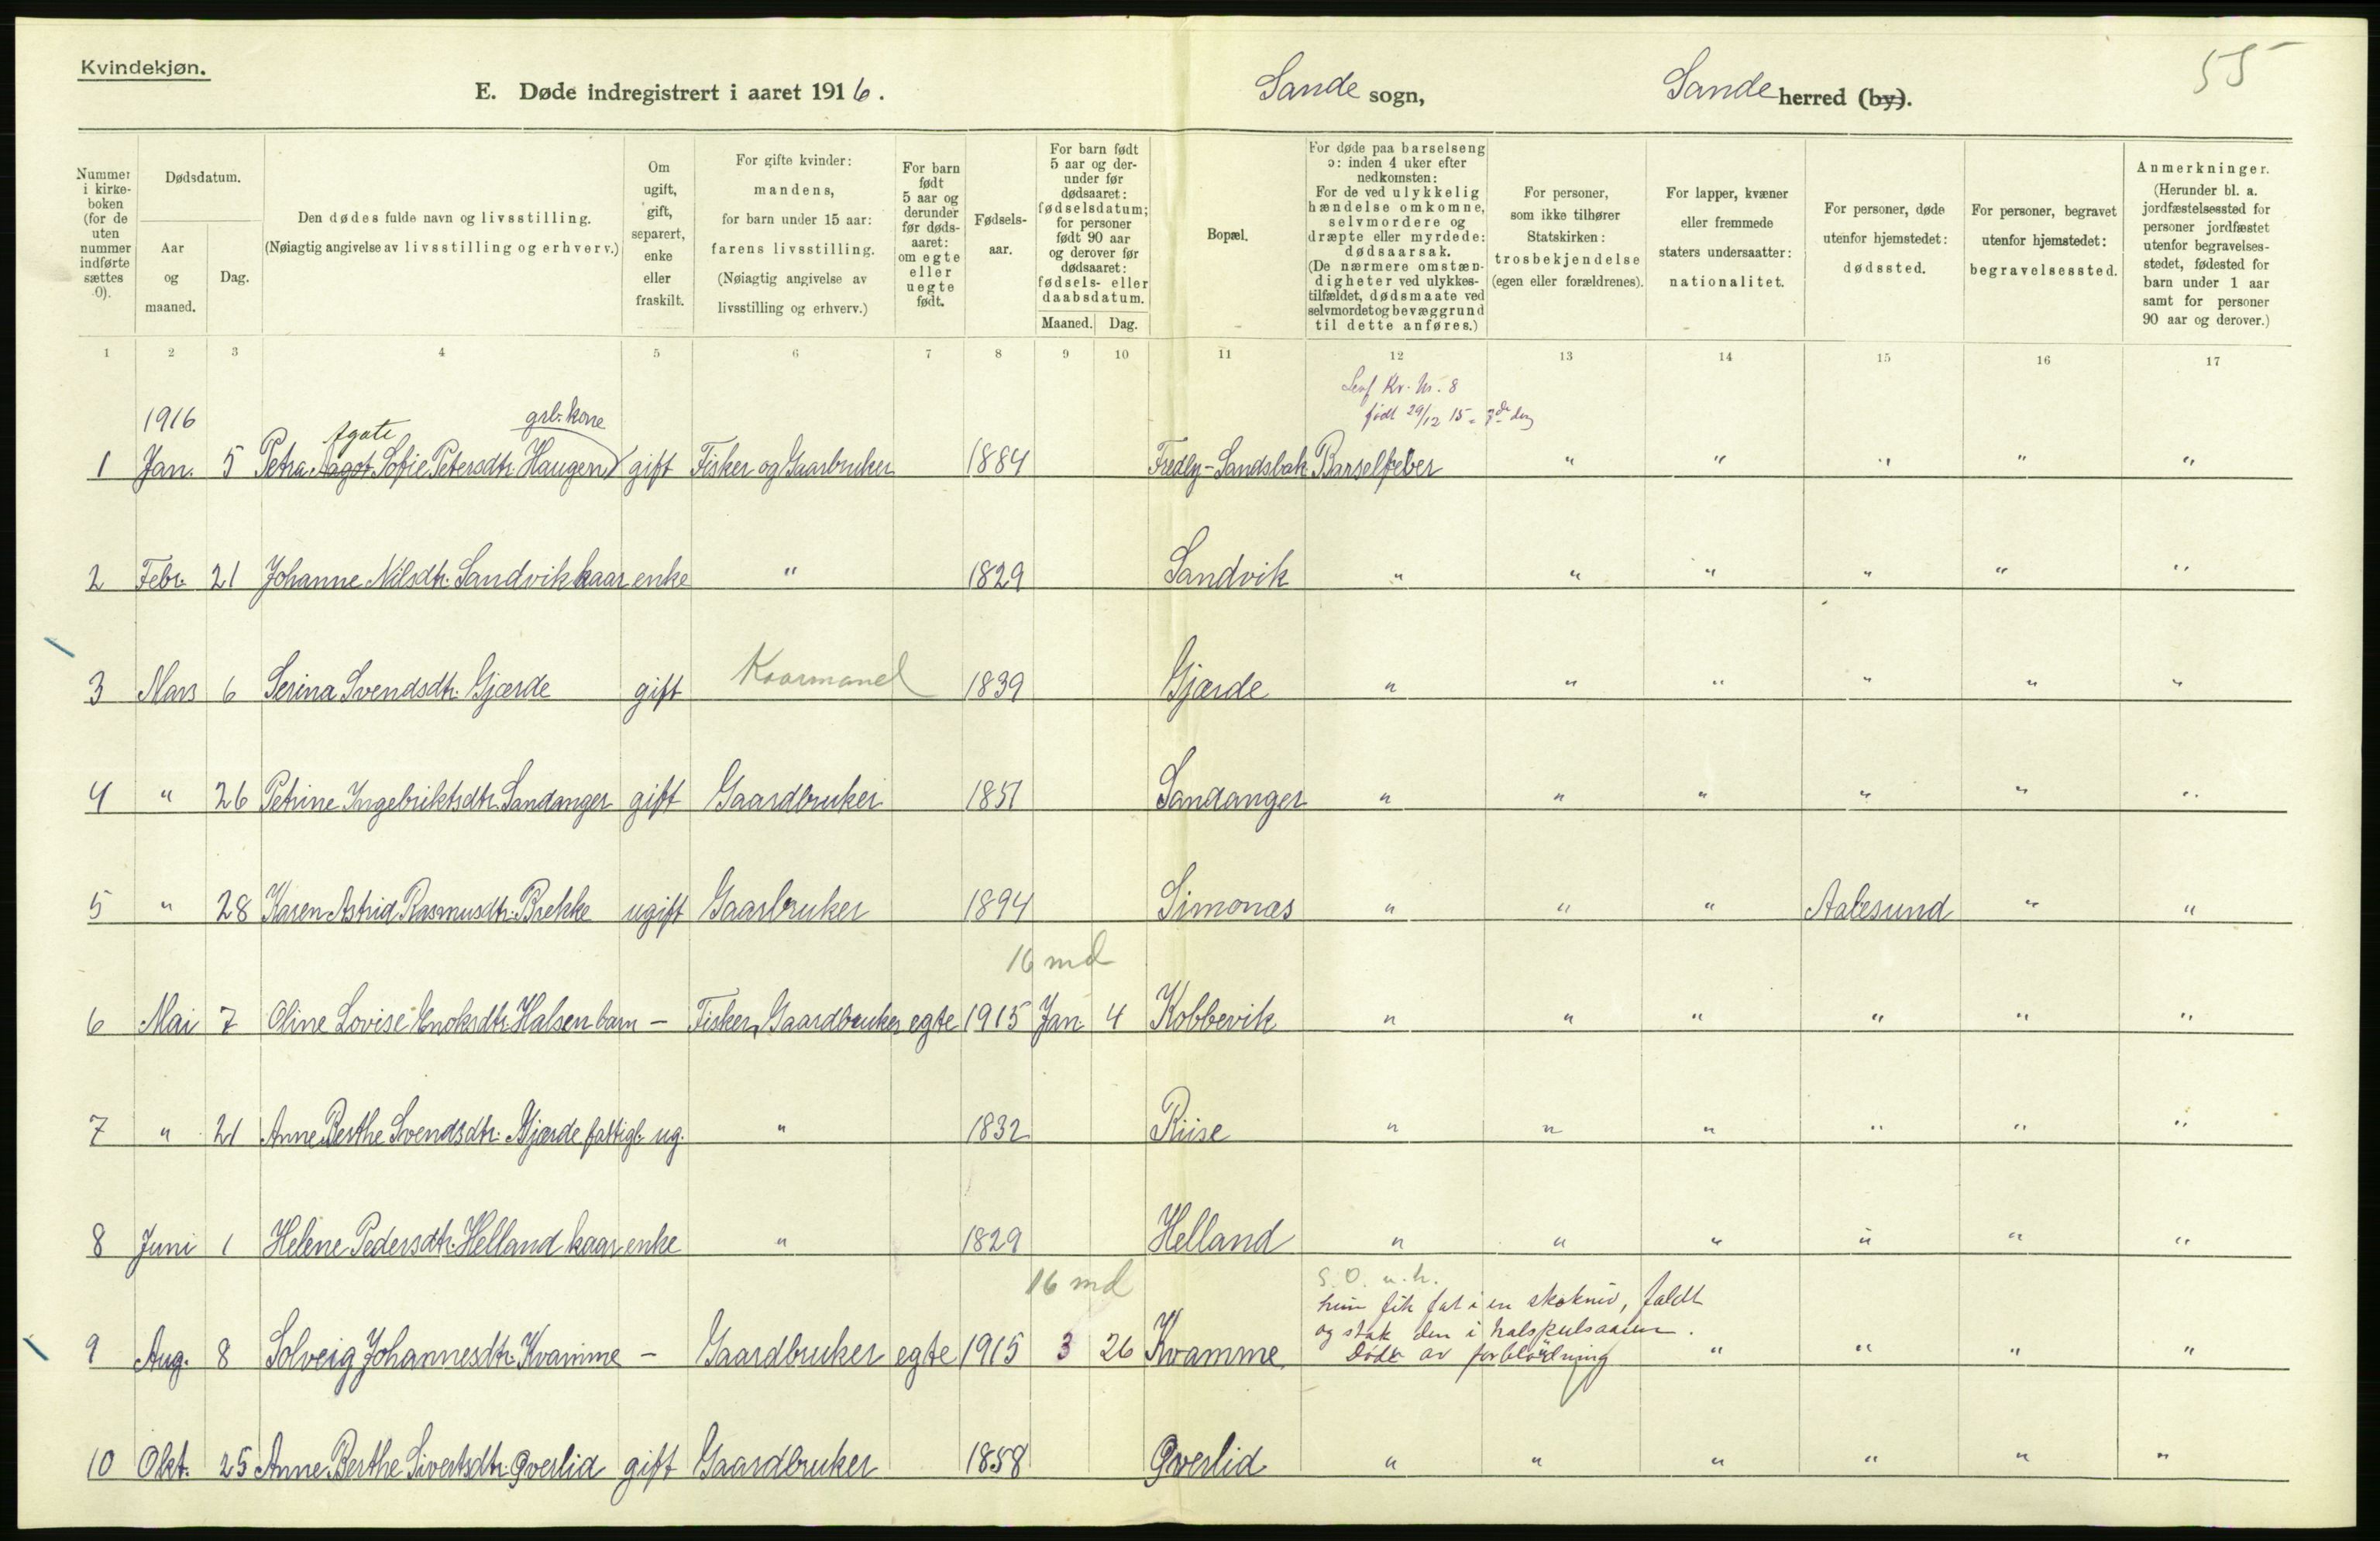 Kvindekjøn.
E. Døde indregistrert i aaret 1916.
Sande sogn,
Sande herred (by).
55
Nummer i kirkeboken (for de uten nummer indførte sættes 0).
Dødsdatum.
Aar og maaned.
Dag.
Den dødes fulde navn og livsstilling.
(Nøiagtig angivelse av livsstilling og erhverv.)
Om ugift, gift, separert, enke eller fraskilt.
For gifte kvinder: mandens, for barn under 15 aar: farens livsstilling. (Nøiagtig angivelse av livsstilling og erhverv.)
For barn født 5 aar og derunder før dødsaaret: om egte eller uegte født.
Fødselsaar.
For barn født 5 aar og derunder før dødsaaret: fødselsdatum; for personer født 90 aar og derover før dødsaaret: fødsels- eller daabsdatum.
Maaned. Dag.
Bopæl.
For døde paa barselseng ɔ: inden 4 uker efter nedkomsten: For de ved ulykkelig hændelse omkomne, selvmordere og dræpte eller myrdede: dødsaarsak. (De nærmere omstændigheter ved ulykkestilfældet, dødsmaate ved selvmordet og bevæggrund til dette anføres.)
For personer, som ikke tilhører Statskirken: trosbekjendelse (egen eller forældrenes).
For lapper, kvæner eller fremmede staters undersaatter: nationalitet.
For personer, døde utenfor hjemstedet: dødssted.
For personer, begravet utenfor hjemstedet: begravelsessted.
Anmerkninger. (Herunder bl. a. jordfæstelsessted for personer jordfæstet utenfor begravelsesstedet, fødested for barn under 1 aar samt for personer 90 aar og derover.)
1 2 3 4 5 6 7 8 9 10 11 12 13 14 15 16 17
Kv. Nr. 8
født 29/12 15
1916
Agate
grb. kone
1 Jan. 5 Petra Aagot Sofie Petersdtr. Haugen gift Fisker og Gaarbruker 1884 Fredly-Sandsbak Barselfeber " " " " "
2 Febr. 21 Johanne Nilsdtr. Sandvik kaar enke " 1829 Sandvik " " " " " "
3 Mars 6 Serina Svendsdtr. Gjærde gift Kaarmand 1839 Gjærde " " " " " "
4 " 26 Petrine Ingebriktsdtr. Sandanger gift Gaardbruker 1851 Sandanger " " " " " "
5 " 28 Karen Astrid Rasmusdtr. Brekke ugift Gaarbruker 1894 Simonæs " " " Aalesund " "
16 md
6 Mai 7 Oline Lovise Enoksdtr. Halsen barn - Fisker, Gaardbruker egte 1915 Jan. 4 Kobbevik " " " " " "
7 " 21 Anne Berthe Svendsdtr. Gjærde fattigl. ug. " 1832 Riise " " " " " "
8 Juni 1 Helene Pedersdtr. Helland kaar enke " 1829 Helland " " " " " "
16 md
hun fik fat i en skokniv, faldt
og stak den i halspulsaaren.
9 Aug. 8 Solveig Johannesdtr. Kvamme - Gaardbruker egte 1915 3 26 Kvamme Døde av forblødning " " " "
10 Okt. 25 Anne Berthe Sivertsdtr. Øverlid gift Gaardbruker 1858 Øverlid " " " " " "